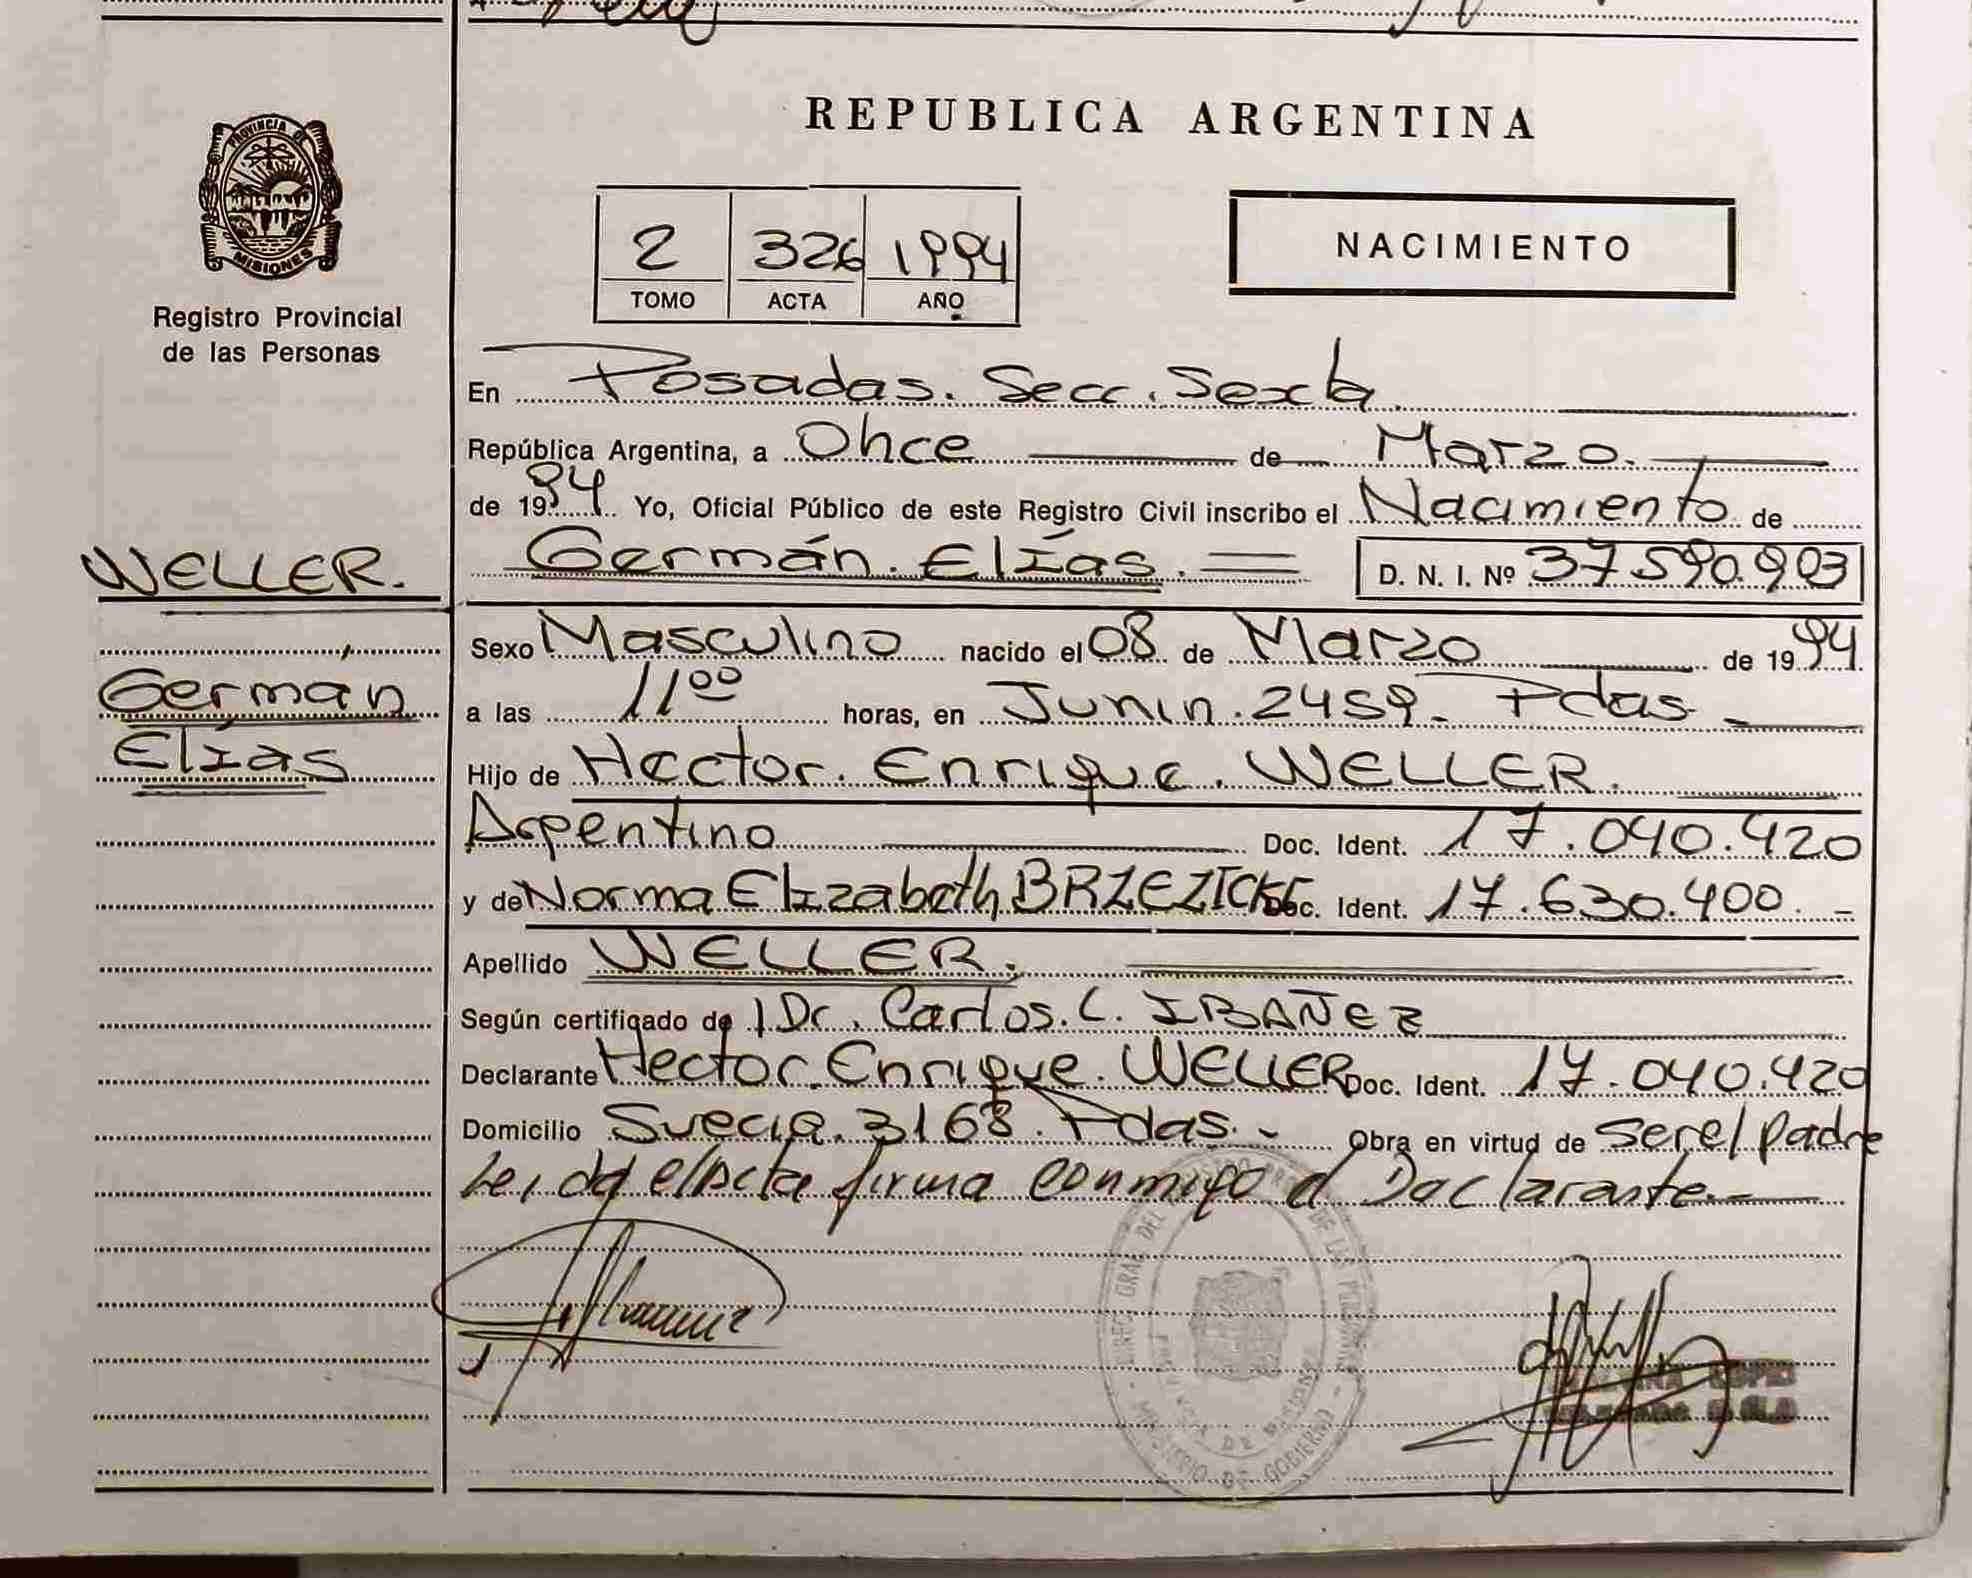 REPUBLICA ARGENTINA
PROVINCIA DE
MISIONES
Registro Provincial
de las Personas
2 326 1994
TOMO ACTA AÑO
NACIMIENTO
En Posadas. Secc. Sexta
República Argentina, a Once de Marzo.
de 1994 Yo, Oficial Público de este Registro Civil inscribo el Nacimiento de
Germán. Elías. D. N. I. Nº 37.590.903
WELLER.
Germán
Elías
Sexo Masculino nacido el 08 de Marzo de 1994
a las 11⁰⁰ horas, en Junin. 2459. Pdas
Hijo de Hector. Enrique. WELLER.
Argentino Doc. Ident. 17.040.420
y de Norma Elizabeth BRZEZICKE Doc. Ident. 17.630.400. -
Apellido WELLER.
Según certificado de 1 Dr. Carlos. C. IBAÑEZ
Declarante Hector. Enrique. WELLER Doc. Ident. 17.040.420
Domicilio Suecia. 3168. Pdas. - Obra en virtud de ser el padre
Leida el Acta firma conmigo el Declarante. -
DIREC. GRAL. DEL REGISTRO PROV. DE LAS PERSONAS
PROVINCIA DE MISIONES
MINISTERIO DE GOBIERNO